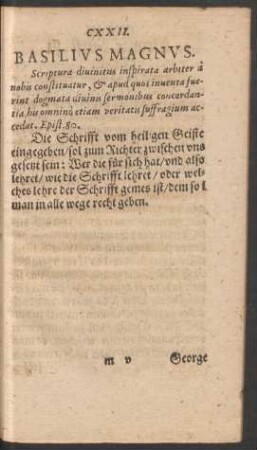 CXXII.
BASILIVS MAGNVS.
Scriptura divinitus inspirata arbiter à
nobis constituatur, & apud quos inventa fue-
rint dogmata divinis sermonibus concordan-
tia, his omninò etiam veritatis suffragium ac-
cedat. Epist. 80.
Die Schrifft vom heilgen Geiste
eingegeben/sol zum Richter zwischen vns
gesetzt sein: Wer die für sich hat/vnd also
lehret/wie die Schrifft lehret/oder wel-
ches lehre der Schrifft gemes ist/dem sol
man in alle wege recht geben.
m v George